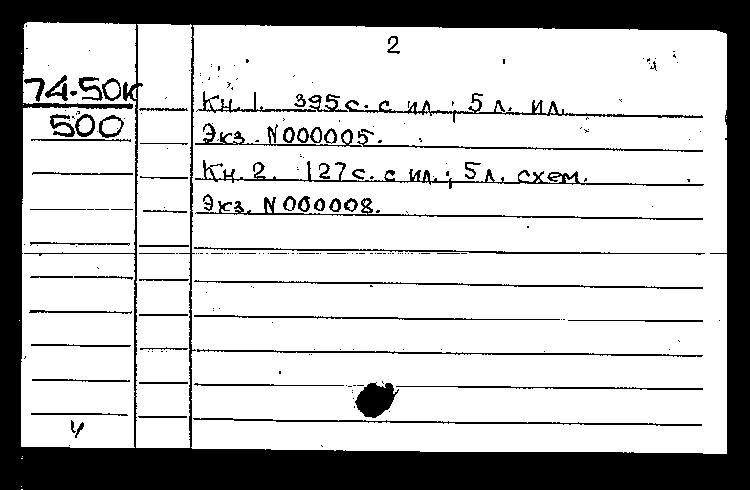 2
74.50к
500
Кн. 1. 395 с. с ил.; 5 л. ил.
Экз. N000005.
Кн. 2. 127 с. с ил.; 5 л. схем.
Экз. N000008.